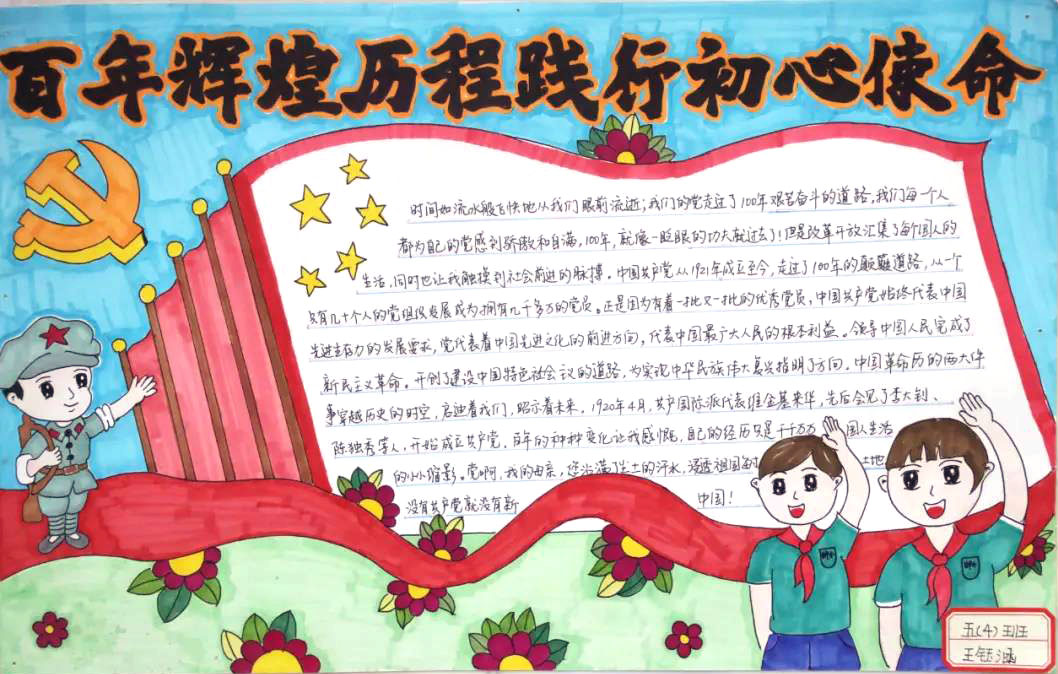 百年辉煌历程践行初心使命
时间如流水般飞快地从我们眼前流逝；我们的党走过了100年艰苦奋斗的道路，我们每一个人
都为自己的党感到骄傲和自满，100年，就像一眨眼的功夫就过去了！但是改革开放汇集了每个国人的
生活，同时也让我触摸到社会前进的脉搏。中国共产党从1921年成立至今，走过了100年的颠簸道路，从一个
只有几十个人的党组织发展成为拥有几千多万的党员。正是因为有着一批又一批的优秀党员，中国共产党始终代表中国
先进生产力的发展要求，党代表着中国先进文化的前进方向，代表中国最广大人民的根本利益。领导中国人民完成了
新民主义革命。开创了建设中国特色社会议的道路，为实现中华民族伟大复兴指明了方向。中国革命历的两大件
事穿越历史的时空，启迪着我们，昭示着未来。1920年4月，共产国际派代表维金基来华，先后会见了李大钊、
陈独秀等人，开始成立共产党。百年的种种变化让我感慨，自己的经历只是千千万万 国人生活
的小小缩影。党啊，我的母亲，您沾满了尘土的汗水，浸透祖国每 土地
没有共产党就没有新 中国！
五(4)班
王钰涵